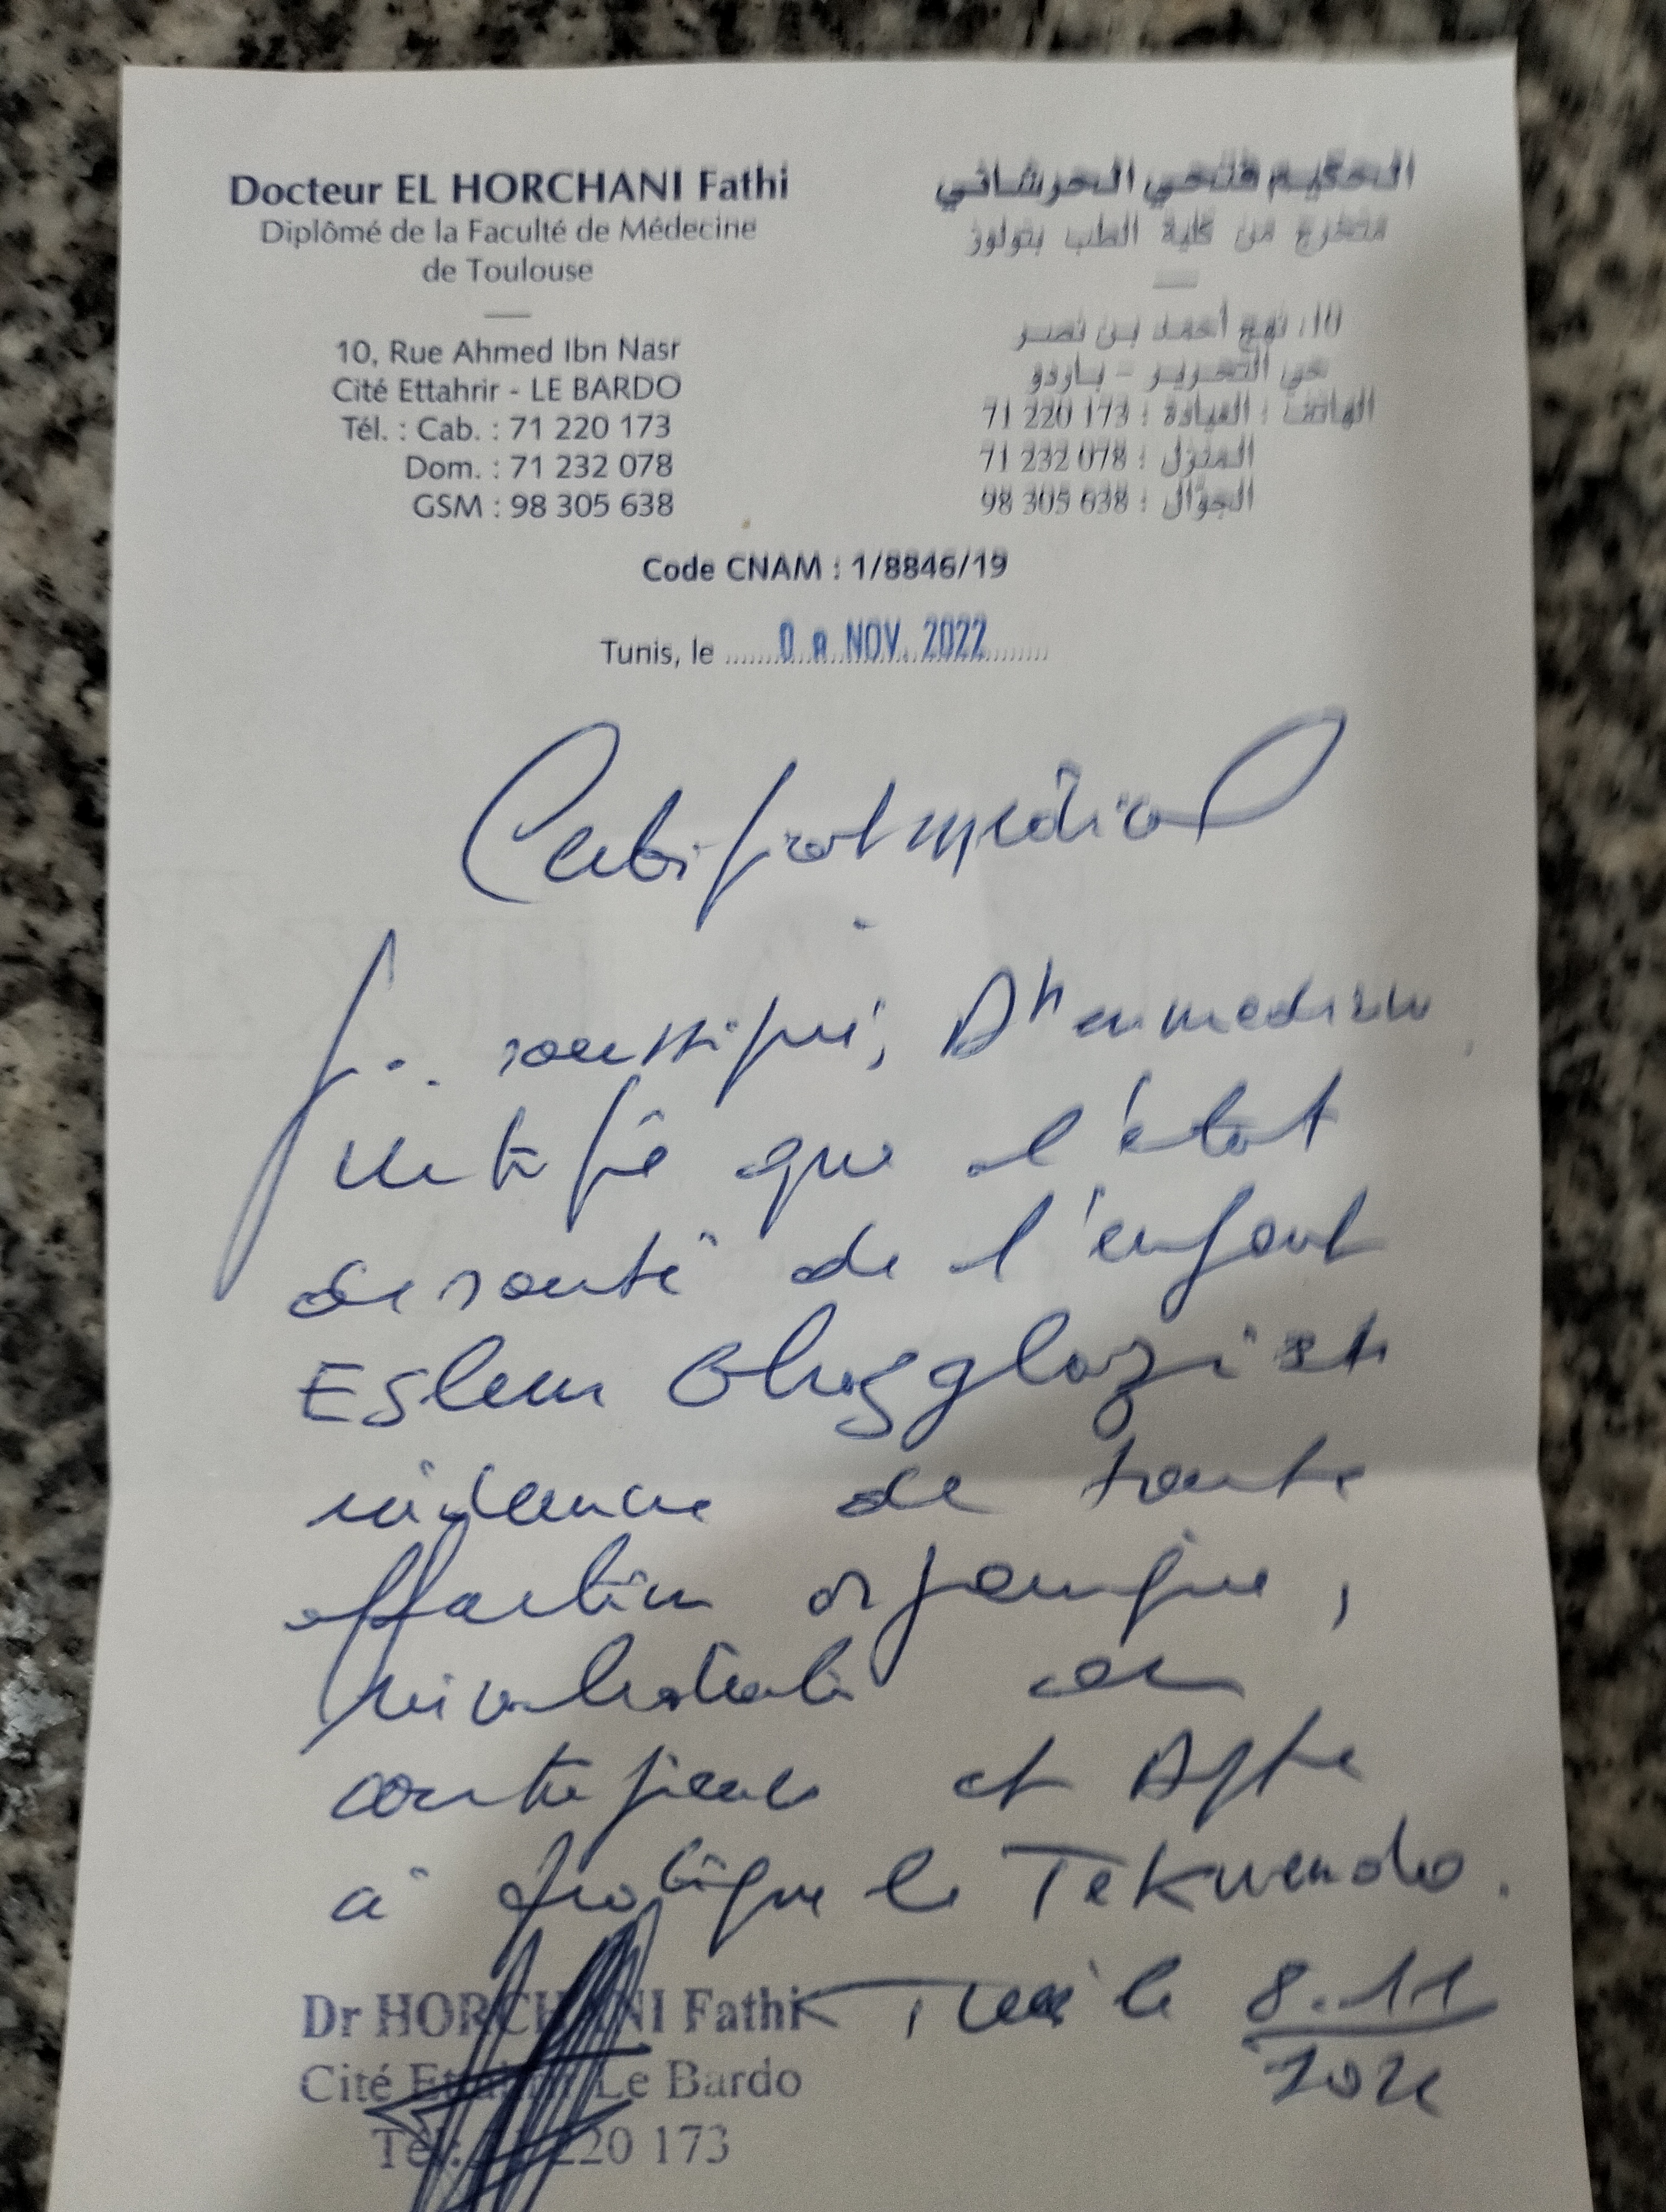 Docteur EL HORCHANI Fathi
Diplômé de la Faculté de Médecine
de Toulouse
10, Rue Ahmed Ibn Nasr
Cité Ettahrir - LE BARDO
Tél. : Cab. : 71 220 173
Dom. : 71 232 078
GSM : 98 305 638
الحكيم فتحي الحرشاني
متخرج من كلية الطب بتولوز
10، نهج أحمد بن نصر
حي التحرير - باردو
الهاتف : العيادة : 71 220 173
المنزل : 71 232 078
الجوّال : 98 305 638
Code CNAM : 1/8846/19
Tunis, le 08 NOV. 2022
Certificat médical
Je soussigné, Dr en médecine
certifie que l'état
de santé de l'enfant
Eslem est
de toute
affection organique,
ou
contagieuse et Apte
à pratiquer le Tekwendo.
Dr HORCHANI Fathi
Cité Ettahrir Le Bardo
Tél: 71 220 173
Tunis le 8.11
2022